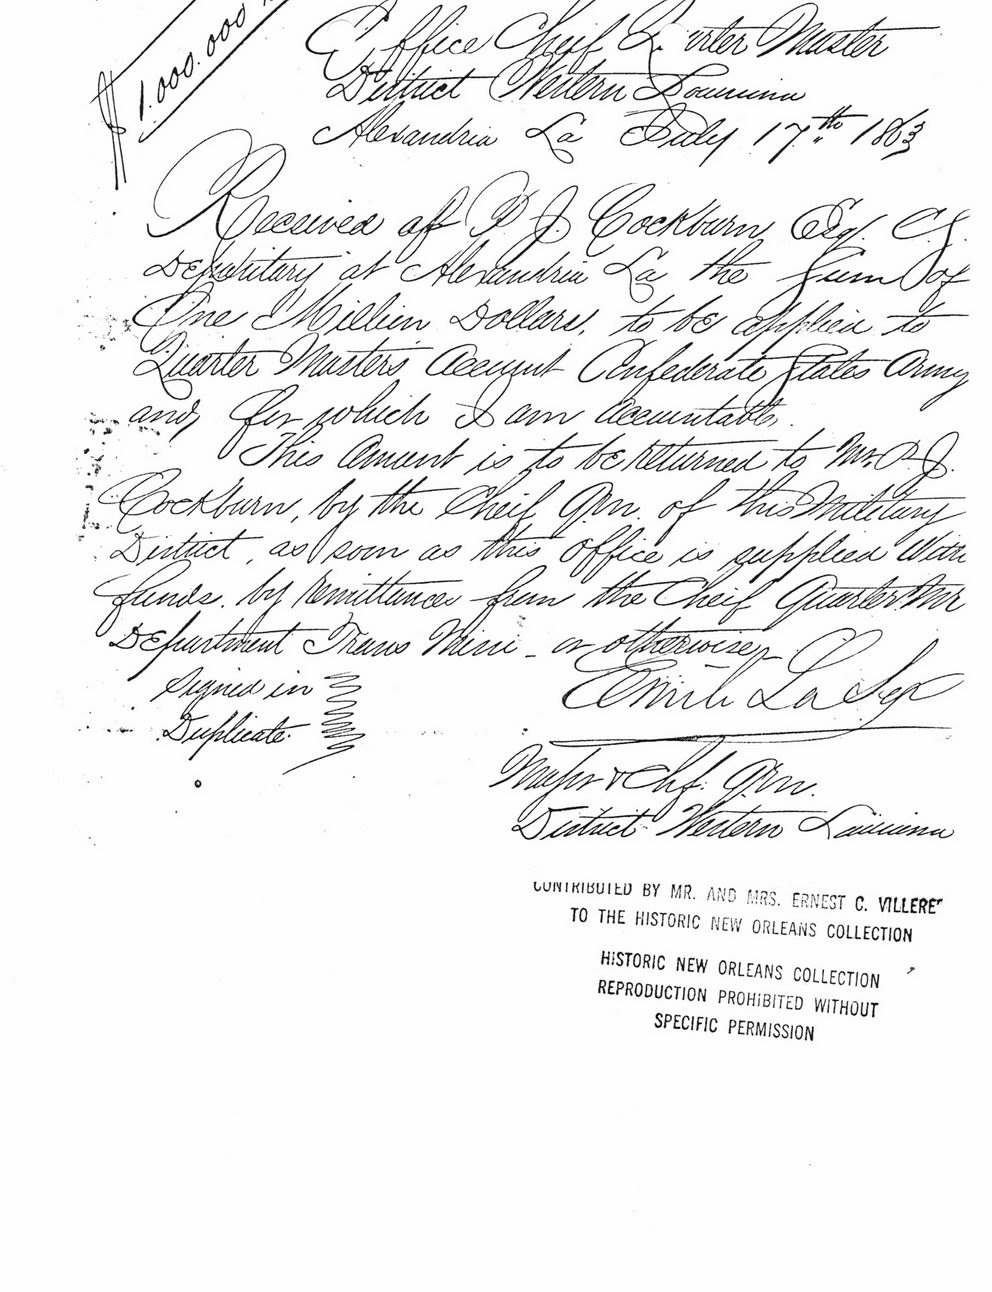 $1.000.000
Office Cheif Quarter Master
District Western Louisiana
Alexandria La July 17th 1863
Received off P. J. Cockburn Esq. C.S.
Depositary at Alexandria La the Sum of
One Million Dollars, to be applied to
Quarter Masters Account Confederate States Army
and, for which I am accountable.
This amount is to be returned to Mr. P. J.
Cockburn, by the Cheif Qrm. of this Military
District, as soon as this office is supplied with
funds. by remittances from the Cheif Quarter Mr
Department Trans Missi - or otherwise
Signed in
Duplicate.
Emile La Sére
Major & Chf. Qrm.
District Western Louisiana
CONTRIBUTED BY MR. AND MRS. ERNEST C. VILLERE
TO THE HISTORIC NEW ORLEANS COLLECTION
HISTORIC NEW ORLEANS COLLECTION
REPRODUCTION PROHIBITED WITHOUT
SPECIFIC PERMISSION